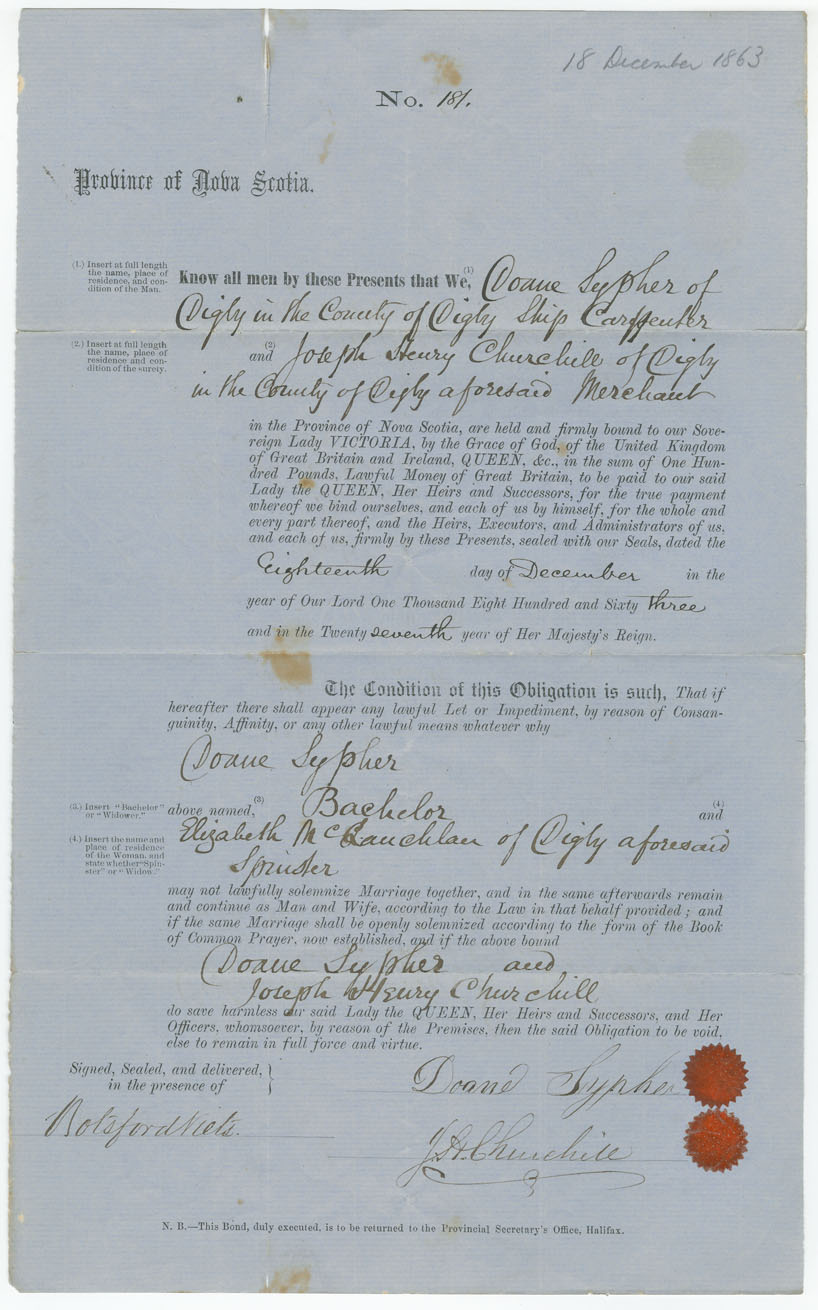 18 December 1863
No. 181.
Province of Nova Scotia.
(1.) Insert at full length
the name, place of
residence, and con-
dition of the Man.
Know all men by these Presents that We, (1) Doane Sypher of
Digby in the County of Digby Ship Carpenter
(2.) Insert at full length
the name, place of
residence and con-
dition of the surety.
and (2) Joseph Henry Churchill of Digby
in the County of Digby aforesaid Merchant
in the Province of Nova Scotia, are held and firmly bound to our Sove-
reign Lady VICTORIA, by the Grace of God, of the United Kingdom
of Great Britain and Ireland, QUEEN, &c., in the sum of One Hun-
dred Pounds, Lawful Money of Great Britain, to be paid to our said
Lady the QUEEN, Her Heirs and Successors, for the true payment
whereof we bind ourselves, and each of us by himself, for the whole and
every part thereof, and the Heirs, Executors, and Administrators of us,
and each of us, firmly by these Presents, sealed with our Seals, dated the
Eighteenth day of December in the
year of Our Lord One Thousand Eight Hundred and Sixty three
and in the Twenty seventh year of Her Majesty's Reign.
The Condition of this Obligation is such, That if
hereafter there shall appear any lawful Let or Impediment, by reason of Consan-
guinity, Affinity, or any other lawful means whatever why
Doane Sypher
(3.) Insert "Bachelor"
or "Widower."
above named, (3) Bachelor and (4)
(4.) Insert the name and
place of residence
of the Woman, and
state whether "Spin-
ster" or "Widow."
Elizabeth McLauchlan of Digby aforesaid
Spinster
may not lawfully solemnize Marriage together, and in the same afterwards remain
and continue as Man and Wife, according to the Law in that behalf provided; and
if the same Marriage shall be openly solemnized according to the form of the Book
of Common Prayer, now established, and if the above bound
Doane Sypher and
Joseph Henry Churchill
do save harmless our said Lady the QUEEN, Her Heirs and Successors, and Her
Officers, whomsoever, by reason of the Premises, then the said Obligation to be void,
else to remain in full force and virtue.
Signed, Sealed, and delivered,
in the presence of
Doane Sypher
Botsford Viets.
J. H. Churchill
N. B.—This Bond, duly executed, is to be returned to the Provincial Secretary's Office, Halifax.